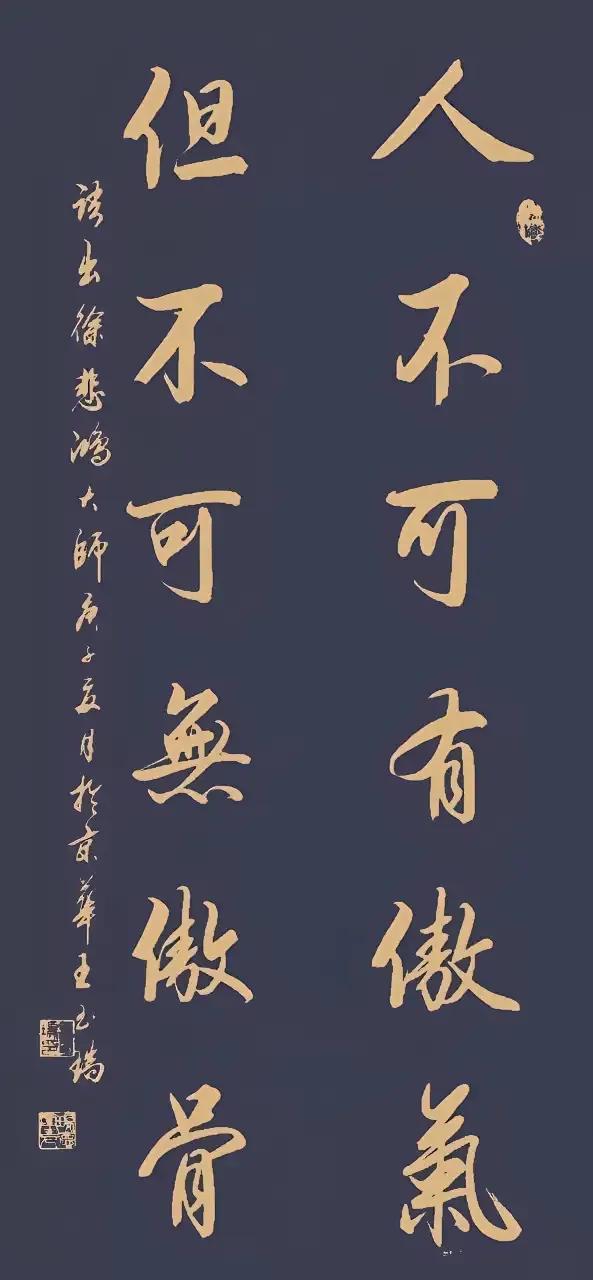 人不可有傲氣
但不可無傲骨
語出徐悲鴻大師庚子夏月於京華王玉瑞